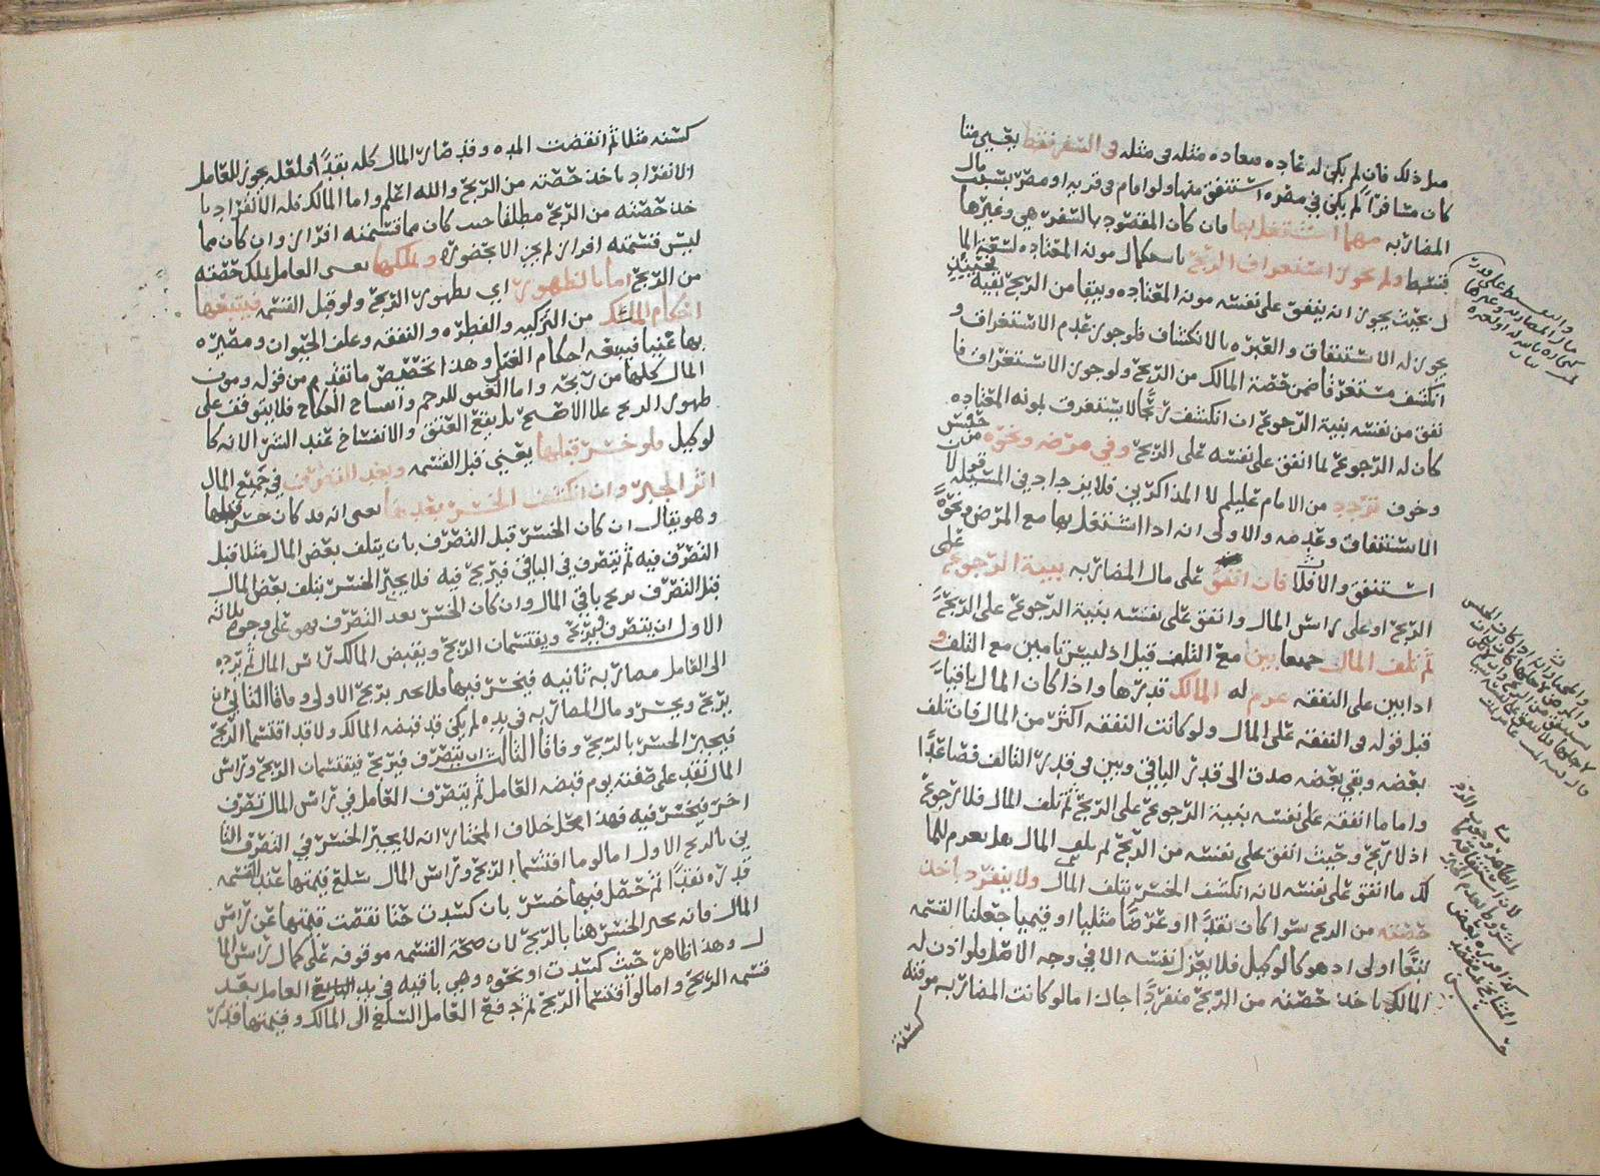 مثل ذلك فان لم يكن له عاده معاده مثله في مثله في السفر فقط يعني متا
كان مسافرا لم يكن في مصره استنفق منها ولو اقام في قريه او مصر بسبب مال
المضاربه مهما اشتغل بها فان كان المقصود بالسفر هي وغيرها
فتقسط ولم يجوز استغراف الربح باستكمال مونة المعتاده لسعة الما
ل بحيث يجوز انه ينفق على نفسه مونه المعتاده ويبقا من الربح بقية
يجوز له الاستنفاق والعبره بالانكشاف فلو جوز عدم الاستغراق و
انكشف مستغرقا ضمن حصة المالك من الربح ولو جوز الاستغراق فا
نفق من نفسه بنية الرجوع ان انكشف ربحا لا يستغرق بمونه المعتاده
كان له الرجوع لما انفق على نفسه على الربح وفي مرضه ونحوه من حبس
وخوف تردد من الامام عليلم لا المذاكرين فلا يزداد في المسئله قولان
الاستنفاق وعدمه والاولى انه اذا اشتغل بها مع المرض ونحوه
استنفق والا فلا فان انفق على مال المضاربه بنية الرجوع على
الربح او على راس المال وانفق على نفسه بنية الرجوع على الربح
ثم تلف المال جميعا بين مع التلف قبل اذ ليس تامين مع التلف و
اذا بين على النفقه غرم له المالك قدرها واذا كان المال باقيا
قبل قوله في النفقه على المال ولو كانت النفقه اكثر من المال فان تلف
بعضه وبقي بعضه صدق الى قدر الباقي وبين في قدر التالف فصاعدا
واما ما انفقه على نفسه بنية الرجوع على الربح ثم تلف المال فلا رجوع
اذ لا ربح وحيث انفق على نفسه من الربح ثم تلف المال هل يغرم للما
لك ما انفق على نفسه لانه انكشف الخسر بتلف المال ولا ينفرد باخذ
حصته من الربح سوا كان نقدا او عرضا مثليا او قيميا جعلنا القسمه
بيعا اولى اذ هو كالوكيل فلا يعزل نفسه الا في وجه الاصل فلو اذن له
المالك باخذ حصته من الربح منفردا جاز اما لو كانت المضاربه موقته
كسنة
كسنه مثلا ثم انقضت المده وقد صار المال كله نقدا فلعله يجوز للعامل
الانفراد باخذ حصته من الربح والله اعلم واما المالك فله الانفراد با
خذ حصته من الربح مطلقا حيث كان مما قسمته افراز وان كان مما
ليس قسمته افراز لم يجز الا بحضوره ويملكها يعني العامل يملك حصته
من الربح اما بالظهور اي بظهور الربح ولو قبل القسمه فيتبعها
احكام الملك من التزكيه والفطره والنفقه وعلف الحيوان ومصيره
بها غنيا فيتبعه احكام الغنى وهذا تخصيص ما تقدم من قوله ومون
المال كلها من ربحه واما العتق للرحم وانفساخ النكاح فلا يتوقف على
ظهور الربح على الاصح بل يقع العتق والانفساخ عند الشرا لانه كا
لوكيل فلو خسر قبلها يعني قبل القسمه وبعد التصرف في جميع المال
اثر الجبر وان انكشف الخسر بعدها يعني انه قد كان خسر قبلها
وهو يقال ان كان الخسر قبل التصرف بان يتلف بعض المال مثلا قبل
التصرف فيه ثم يتصرف في الباقي فيربح فيه فلا يجبر الخسر بتلف بعض المال
قبل التصرف بربح باقي المال وان كان الخسر بعد التصرف فهو على وجوه ثلاثه
الاول ان يتصرف فيربح ويقتسمان الربح ويقبض المالك راس المال ثم يرده
الى العامل مضاربه ثانيه فيخسر فيها فلا يجبر بربح الاولى وفاقا الثاني ان
يربح ويخسر ومال المضاربه في يده لم يكن قد قبضه المالك ولا قد اقتسما الربح
فيجبر الخسر بالربح وفاقا الثالث ان يتصرف فيربح فيقتسمان الربح وراس
المال نقد على صفته يوم قبضه العامل ثم يتصرف العامل في راس المال تصرف
اخر فيخسر فيه فهذا محل خلاف المختار انه لا يجبر الخسر في التصرف الثا
ني بالربح الاول اما لو ما اقتسما الربح وراس المال سلع قيمتها عند القسمه
قدره نقدا ثم حصل فيها خسر بان كسدت حتا نقصت قيمتها عن راس
المال فانه يجبر الخسر هنا بالربح لان صحة القسمه موقوفه على كمال راس الما
ل وهذا ظاهر حيث كسدت او نحوه وهي باقيه في يد العامل بعد
قسمه الربح واما لو اقتسما الربح ثم دفع العامل السلع الى المالك وقيمتها قدر